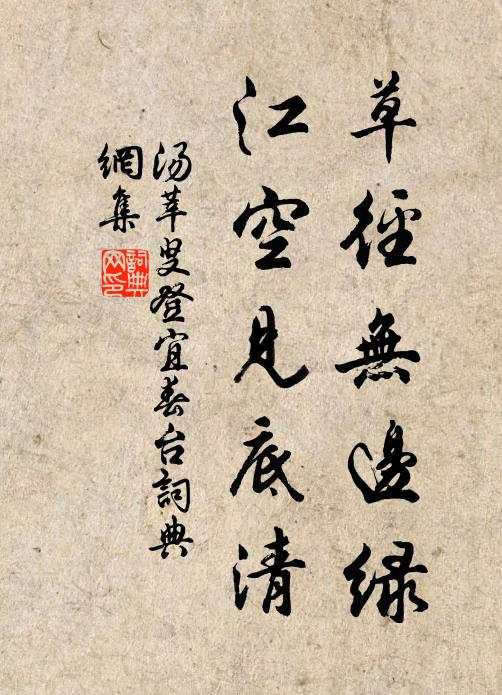 草徑無邊綠
江空見底清
湯莘叟登宜春台詞典
網集
詞典
网印